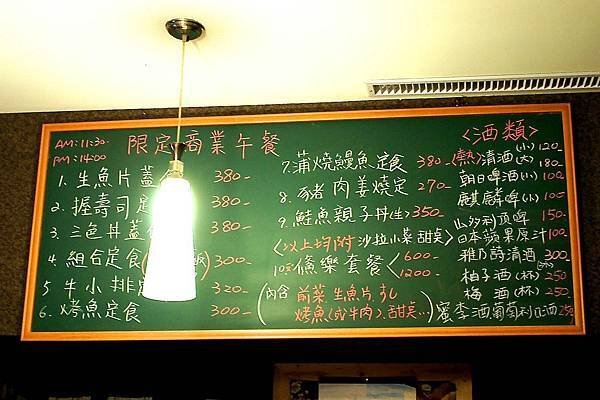 AM:11:30
PM:14:00
限定商業午餐
1. 生魚片蓋 380-
2. 握壽司定 380-
3. 三色丼蓋 380-
4. 組合定食( 飯) 300-
5 牛小排 320-
6. 烤魚定食 300-
7. 蒲燒鰻魚定食 380-
8. 豚肉姜燒定 270-
9. 鮭魚親子丼(生) 350-
<以上均附 沙拉小菜 甜桌>
10 條樂套餐 < 600- 1200-
(內合 前菜 生魚片, すし
烤魚(or牛肉), 甜桌...)
<酒類>
(熱)清酒 (小) 120 (大) 180
朝日啤酒(小) 100
麒麟啤(小) 100
山多利頂啤 150-
日本蘋果原汁 100-
雅乃詩清酒 300
柚子酒(杯) 250
梅 酒(杯) 250
蜜李酒葡萄利口酒 250